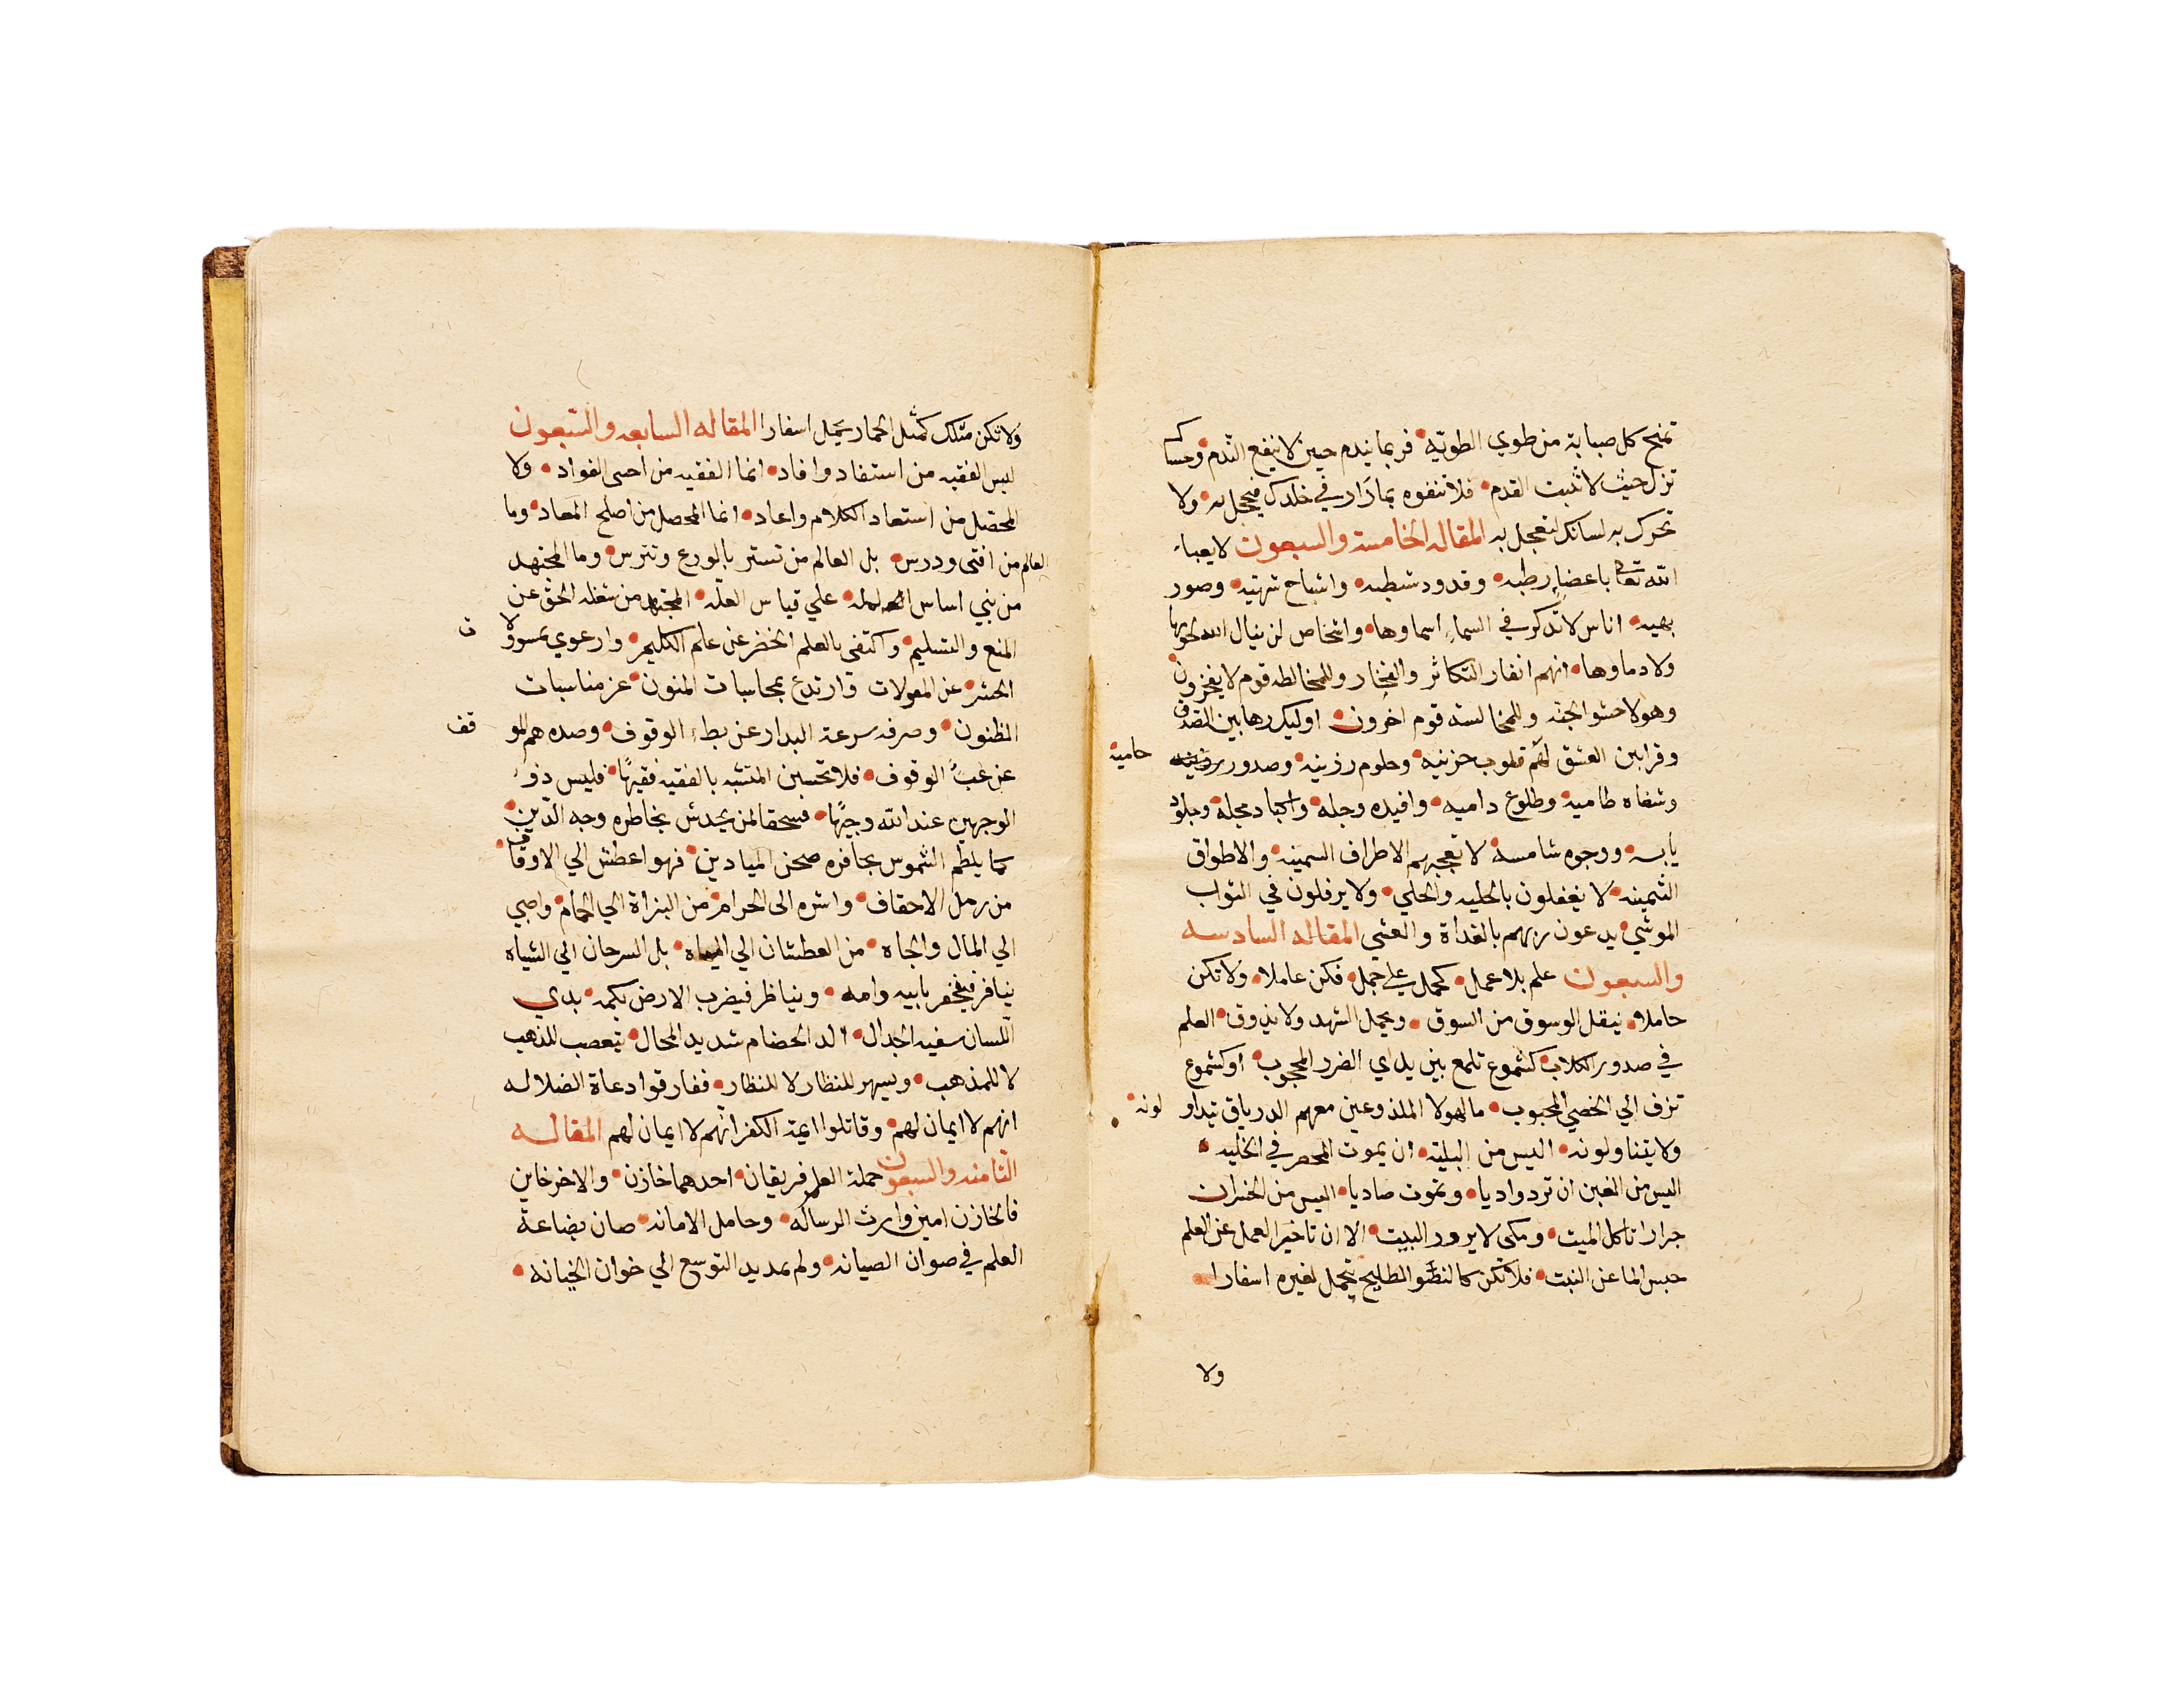 تمنح كل صبابة من طوي الطويّه فربما يندم حين لا ينفع النّدم وعساك
تزل حيث لا تثبت القدم فلا تتفوه بما دار في خلدك فيعجل به ولا
تحرك به لسانك لتعجل به المقاله الخامسة والسبعون لا يعباء
الله تعالى باعضا رطبه وقدود شطبه واشباح شهيّه وصور
بهيه اناس لا تذكر في السماء اسماوها واشخاص لن ينال الله لحومها
ولا دماوها انهم انفار التكاثر والفخار وللمخالطه قوم لا يفخرون
وهولا حشو الجنه وللمخالسة قوم اخرون اوليك رهابين القدوس
وقرابين العشق لهم قلوب حزينه وحلوم رزينه وصدور حاميه
وشفاه ظاميه وطلوع داميه وافيده وجله واكباد مجله وجلود
يابسه ووجوه شامسه لا تعجبهم الاطراف السمينه والاطواق
الثمينه لا يغفلون بالحليه والحلي ولا يرفلون في الثواب
الموشي يدعون ربهم بالغداة والعشي المقاله السادسه
والسبعون علم بلا عمل كحمل علي جمل فكن عاملا ولا تكن
حاملا ينقل الوسوق من السوق ويحمل الشهد ولا يذوق العلم
في صدور الكلاب كشموع تلمع بين يداي الضرر المحجوب او كشموع
تزف الي الخصي المجبوب ما لهولا الملذوعين معهم الدرياق يتداولونه
ولا يتناولونه اليس من البليّة ان يموت المحصر في الخليه
اليس من الغبن ان ترد واديا وتموت صاديا اليس من الخسران
جرار تاكل الميت ومكي لا يزور البيت الا ان تاخير العمل عن العلم
حبس الما عن النبت فلا تكن كالنضو الطليح يحمل لغيره اسفارا
ولا
ولا تكن مثلك كمثل الحمار يحمل اسفارا المقاله السابعه والسّبعون
ليس الفقيه من استفاد وافاد انما الفقيه من احيى الفواد ولا
المحصّل من استعاد الكلام واعاد انما المحصل من اصلح المعاد وما
العالم من افتى ودرس بل العالم من تستر بالورع وتترس وما المجتهد
من بني اساس العلمله علي قياس العلّه المجتهد من شغله الحق عن
المنع والتسليم واكتفى بالعلم الخضر عن علم الكليم وارعوي بمسوولات
الحشر عن المعولات وارتدع بمحاسبات المنون عن مناسبات
المظنون وصرفه سرعة البدار عن بطء الوقوف وصده هم الموقف
عن غبّ الوقوف فلا تحسبن المتشبه بالفقيه فقيهًا فليس ذو
الوجهين عند الله وجيهًا فسحقا لمن يخدش بخاطره وجه الدّين
كما يلطم الشموس بحافره صحن الميادين فهو اعطش الي الاوقاف
من رمل الاحقاف واشره الى الحرام من البزاة الي الحمام واصبي
الي المال والجاه من العطشان الي المياه بل السرحان الي الشياه
ينافر فيفخر بابيه وامه ويناظر فيضرب الارض بكمه بذي
اللّسان سفيه الجدال الد الخصام شديد المحال يتعصب للذهب
لا للمذهب ويسهر للنظار لا للنظار ففارقوا دعاة الضلاله
انهم لا ايمان لهم وقاتلوا ايمة الكفر انّهم لا ايمان لهم المقاله
الثامنه والسبعون حملة العلم فريقان احدهما خازن والاخر خاين
فالخازن امين وارث الرساله وحامل الامانه صان بضاعة
العلم في صوان الصيانه ولم يمد يد التوسع الي خوان الخيانه